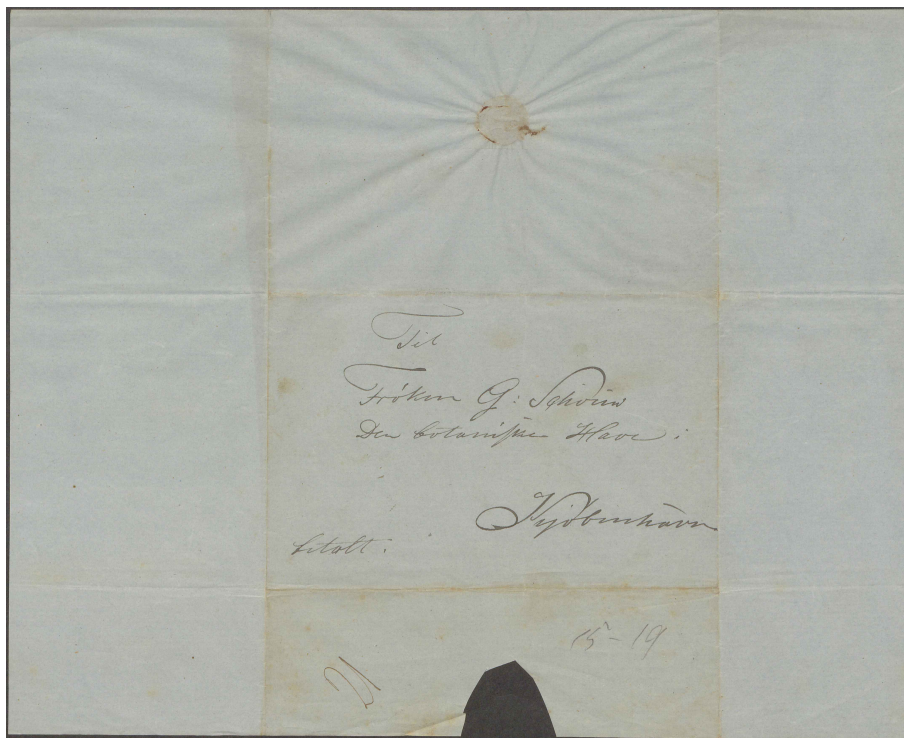 Til
Frøken G: Schouw
Den botaniske Have :
Kjøbenhavn
betalt :
15-19